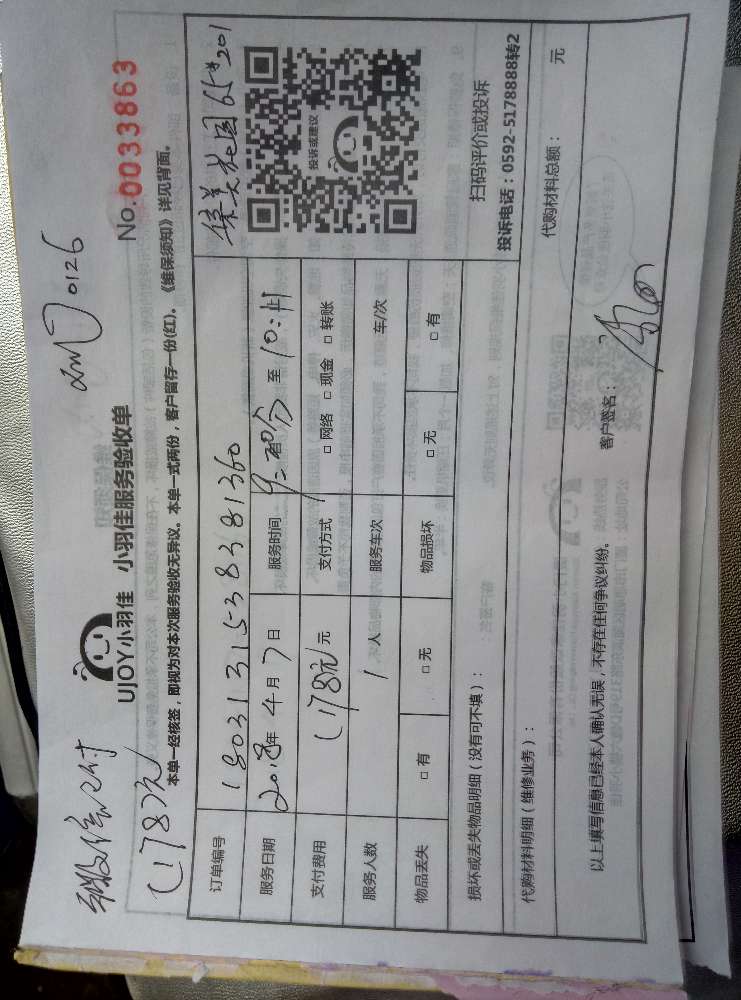 0126
UJOY小羽佳 小羽佳服务验收单
No.0033863
178元
本单一经核签，即视为对本次服务验收无异议。本单一式两份，客户留存一份(红)。《维保须知》详见背面。
订单编号 1803131538381360
集美花园65#201
服务日期 2018年4月7日 服务时间 至10:11
支付费用 178元/元 支付方式 □网络 □现金 □转账
服务人数 1人 服务车次 车/次
物品丢失 □有 □无 物品损坏 □无 □有
投诉或建议
扫码评价或投诉
投诉电话：0592-5178888转2
损坏或丢失物品明细（没有可不填）：
代购材料明细（维修业务）： 代购材料总额： 元
以上填写信息已经本人确认无误，不存在任何争议纠纷。 客户签名：